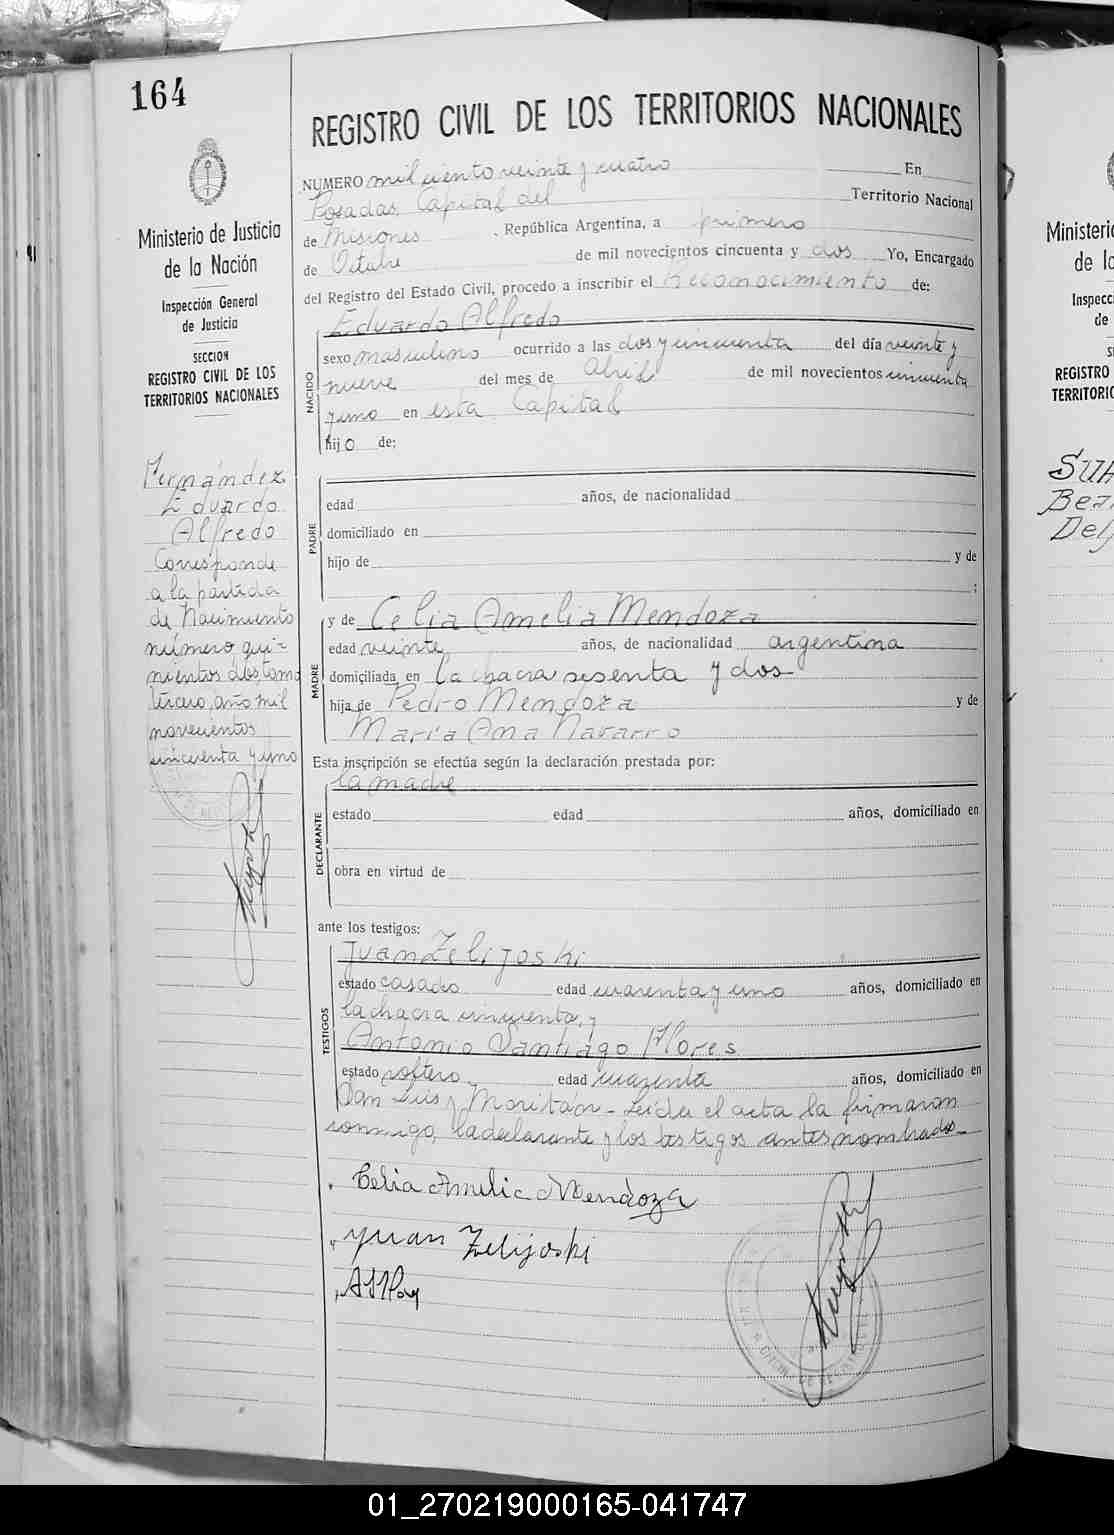 164
REGISTRO CIVIL DE LOS TERRITORIOS NACIONALES
Ministerio de Justicia
de la Nación
Inspección General
de Justicia
SECCION
REGISTRO CIVIL DE LOS
TERRITORIOS NACIONALES
Fernández
Eduardo
Alfredo
Corresponde
a la partida
de Nacimiento
número qui-
nientos dos, tomo
tercero, año mil
novecientos
cincuenta y uno
NUMERO mil ciento veinte y cuatro En
Posadas, Capital del Territorio Nacional
de Misiones, República Argentina, a primero
de Octubre de mil novecientos cincuenta y dos Yo, Encargado
del Registro del Estado Civil, procedo a inscribir el Reconocimiento de:
NACIDO
Eduardo Alfredo
sexo masculino ocurrido a las dos y cincuenta del día veinte y
nueve del mes de Abril de mil novecientos cincuenta
y uno en esta Capital
hijo de:
PADRE
edad años, de nacionalidad
domiciliado en
hijo de y de
;
MADRE
y de Celia Amelia Mendoza
edad veinte años, de nacionalidad argentina
domiciliada en la chacra sesenta y dos
hija de Pedro Mendoza y de
María Ana Navarro
Esta inscripción se efectúa según la declaración prestada por:
DECLARANTE
la madre
estado edad años, domiciliado en
obra en virtud de
ante los testigos:
TESTIGOS
Juan Zelijoski
estado casado edad cuarenta y uno años, domiciliado en
la chacra cincuenta, y
Antonio Santiago Flores
estado soltero edad cuarenta años, domiciliado en
San Luis y Moritán - Leída el acta la firmaron
conmigo, la declarante y los testigos antes nombrados -
Celia Amelia Mendoza
Juan Zelijoski
Ministerio
de la
REGISTRO
01_270219000165-041747